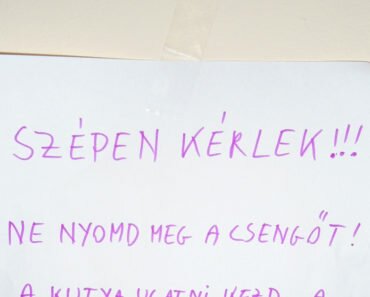 SZÉPEN KÉRLEK!!!
NE NYOMD MEG A CSENGŐT!
A KUTYA UGATNI KEZD A